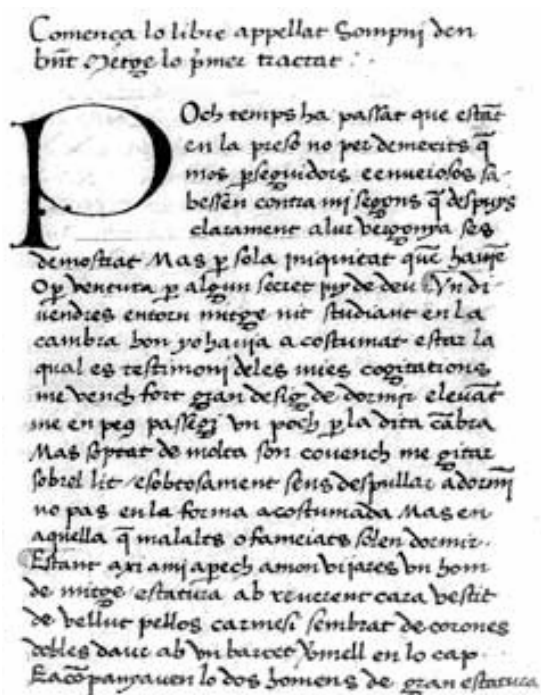 Comença lo libre appellat Sompnj den
bn̄t Metge lo p̄mer tractat .
POch temps ha passat que estāt
en la preso no per demerits q̄
mos p̱seguidors e enueiosos sa-
bessen contra mi segons q̄ despuys
clarament a lur vergonya ses
demostrat Mas p̱ sola iniquitat que hauiē
O p̱ ventura p̱ algun secret juy de deu Vn di
uendres entorn mitge nit studiant en la
cambra hon yo hauia acostumat estar la
qual es testimonj deles mies cogitations
me vench fort gran desig de dormir e leuāt
me en peg passegi vn poch p̱ la dita cābra
Mas soptat de molta son couench me gitar
sobrel lit e sobtosament sens despullar adormj
no pas en la forma acostumada Mas en
aquella q̄ malalts o fameiats solen dormir.
Estant axi amj aparech a mon vijares vn hom
de mitge estatura ab reuerent cara vestit
de vellut pellos carmesi sembrat de corones
dobles daur ab vn barret v̄mell en lo cap
E acōpanyauen lo dos homens de gran estatura